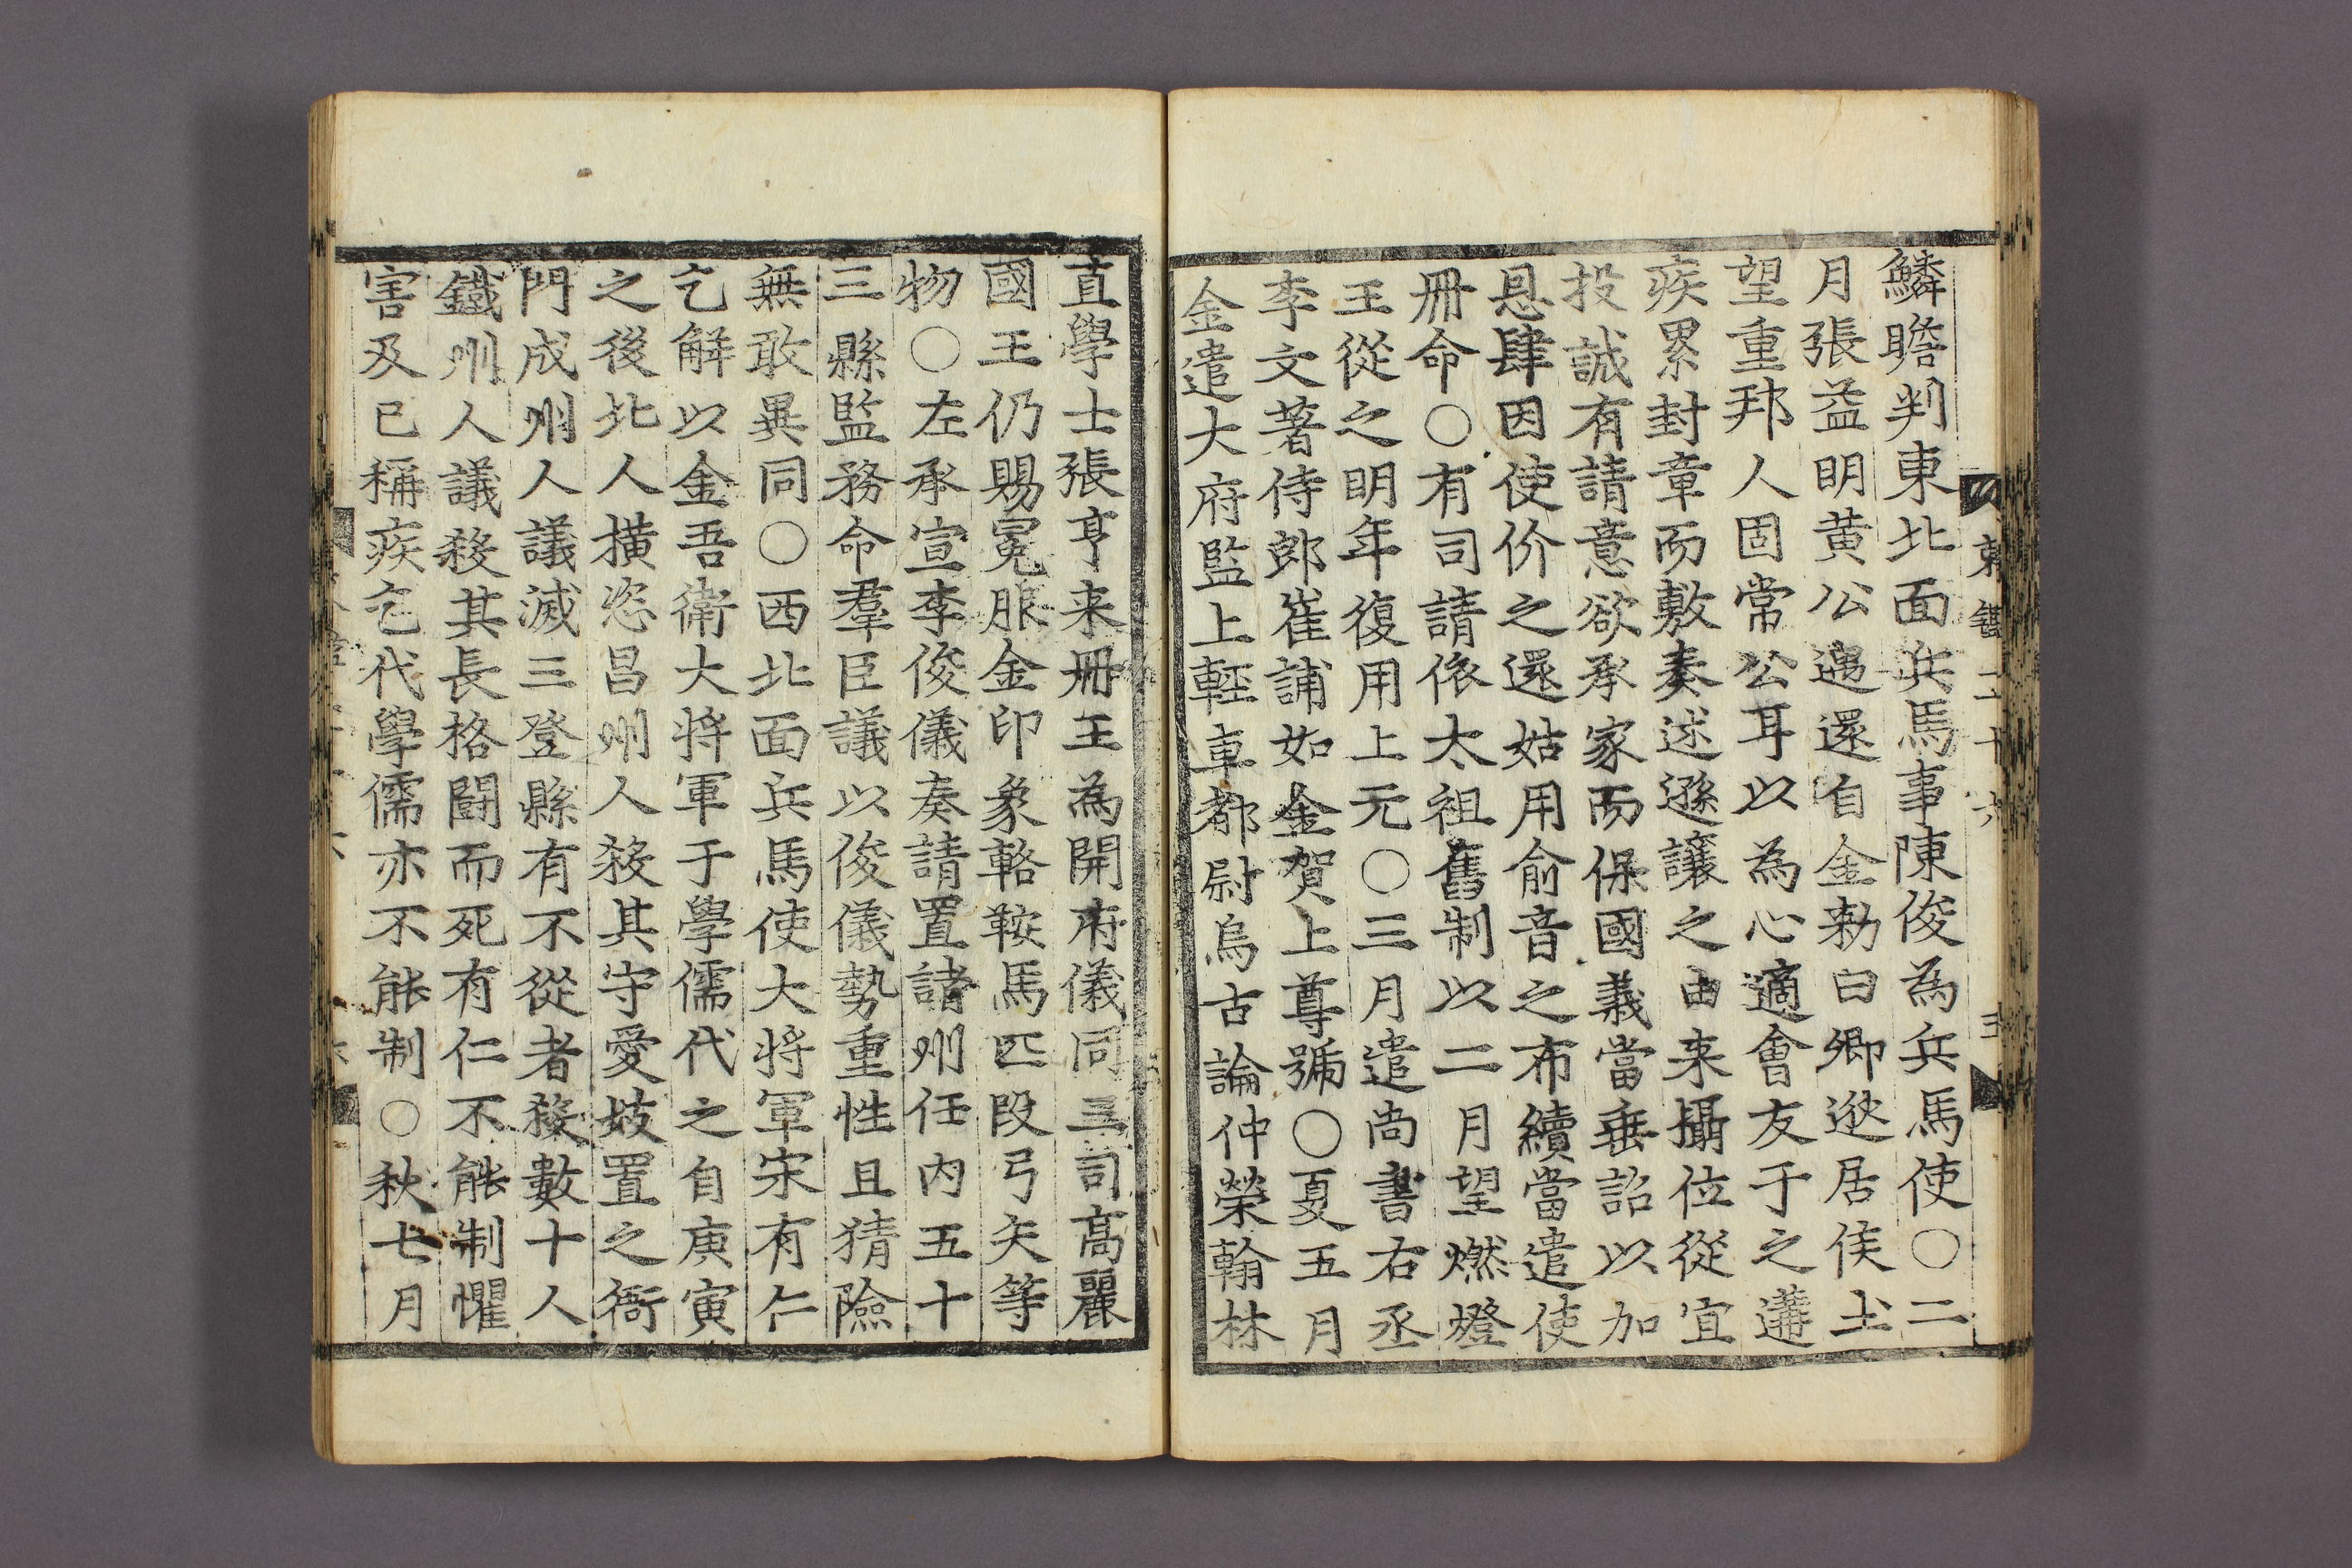 東鑑二十六 三
鱗瞻判東北面兵馬事陳俊為兵馬使〇二
月張益明黄公遇還自金勑曰卿逖居侯土
望重邦人固常公耳以為心適會友于之遘
疾累封章而敷奏述遜讓之由来攝位從宜
投誠有請意欲承家而保國義當垂詔以加
恩肆因使价之還姑用俞音之布續當遣使
冊命〇有司請依太祖舊制以二月望燃燈
王從之明年復用上元〇三月遣尚書右丞
李文著侍郎崔誧如金賀上尊號〇夏五月
金遣大府監上輕車都尉烏古論仲榮翰林
直學士張亨来冊王為開府儀同三司高麗
國王仍賜冕服金印象輅鞍馬匹段弓矢等
物〇左承宣李俊儀奏請置諸州任内五十
三縣監務命羣臣議以俊儀勢重性且猜險
無敢異同〇西北面兵馬使大將軍宋有仁
乞解以金吾衛大將軍于學儒代之自庚寅
之後北人橫恣昌州人殺其守愛妓置之衙
門成州人議滅三登縣有不從者殺數十人
鐵州人議殺其長格鬪而死有仁不能制懼
害及已稱疾乞代學儒亦不能制〇秋七月